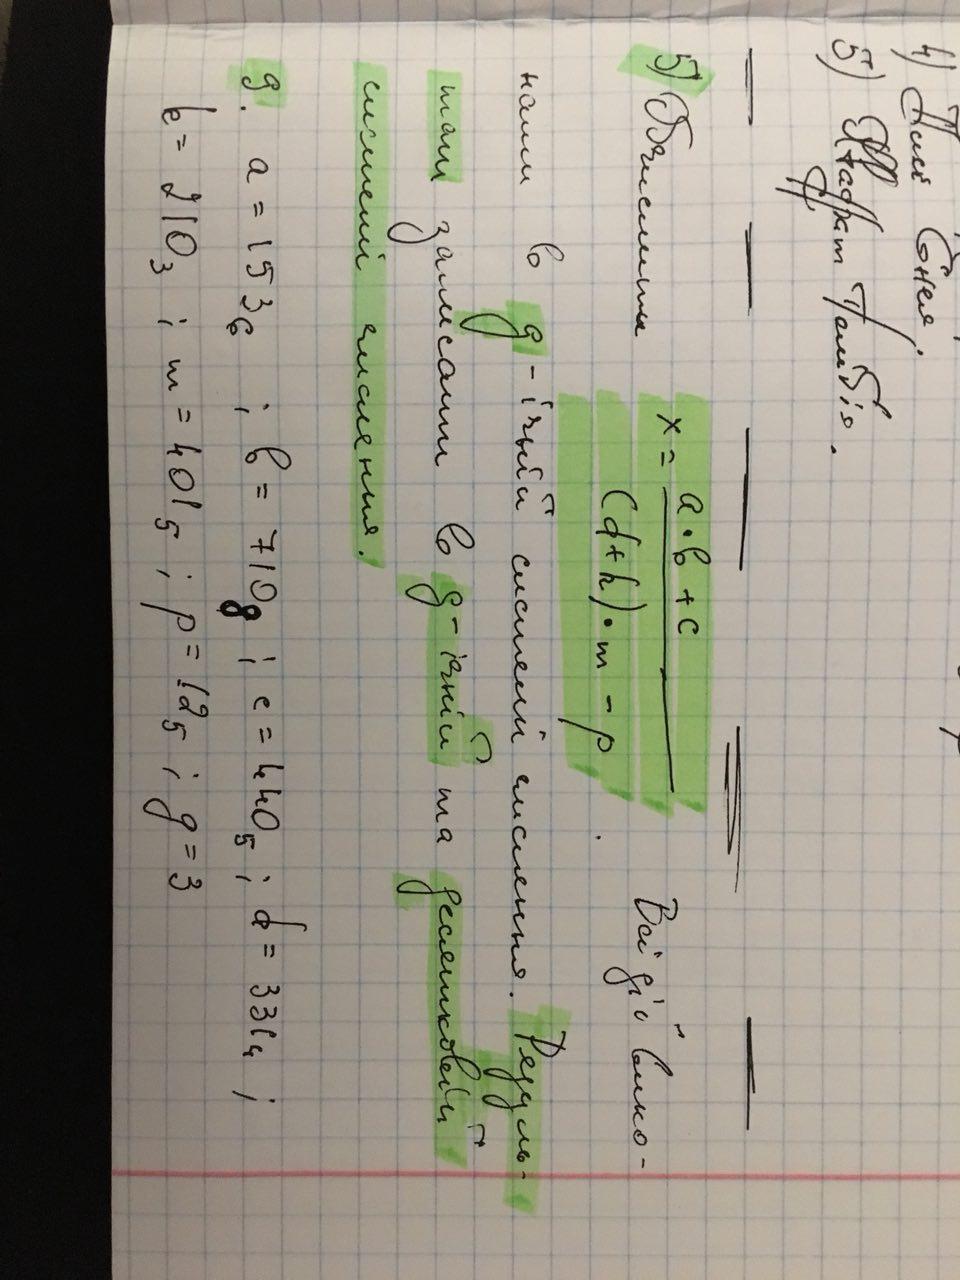 4) Пил Єнея,
5) Штафрат Гомбіо.
5) Обчислити x = a·b + c / (d+k)·m - p . Всі дії вико-
нати в g-ічній системі числення. Резуль-
тат записати в g-ічній та десятковій
системі числення.
9. a = 153₆ ; b = 710₈ ; c = 440₅ ; d = 331₄ ;
k = 210₃ ; m = 401₅ ; p = 12₅ ; g = 3